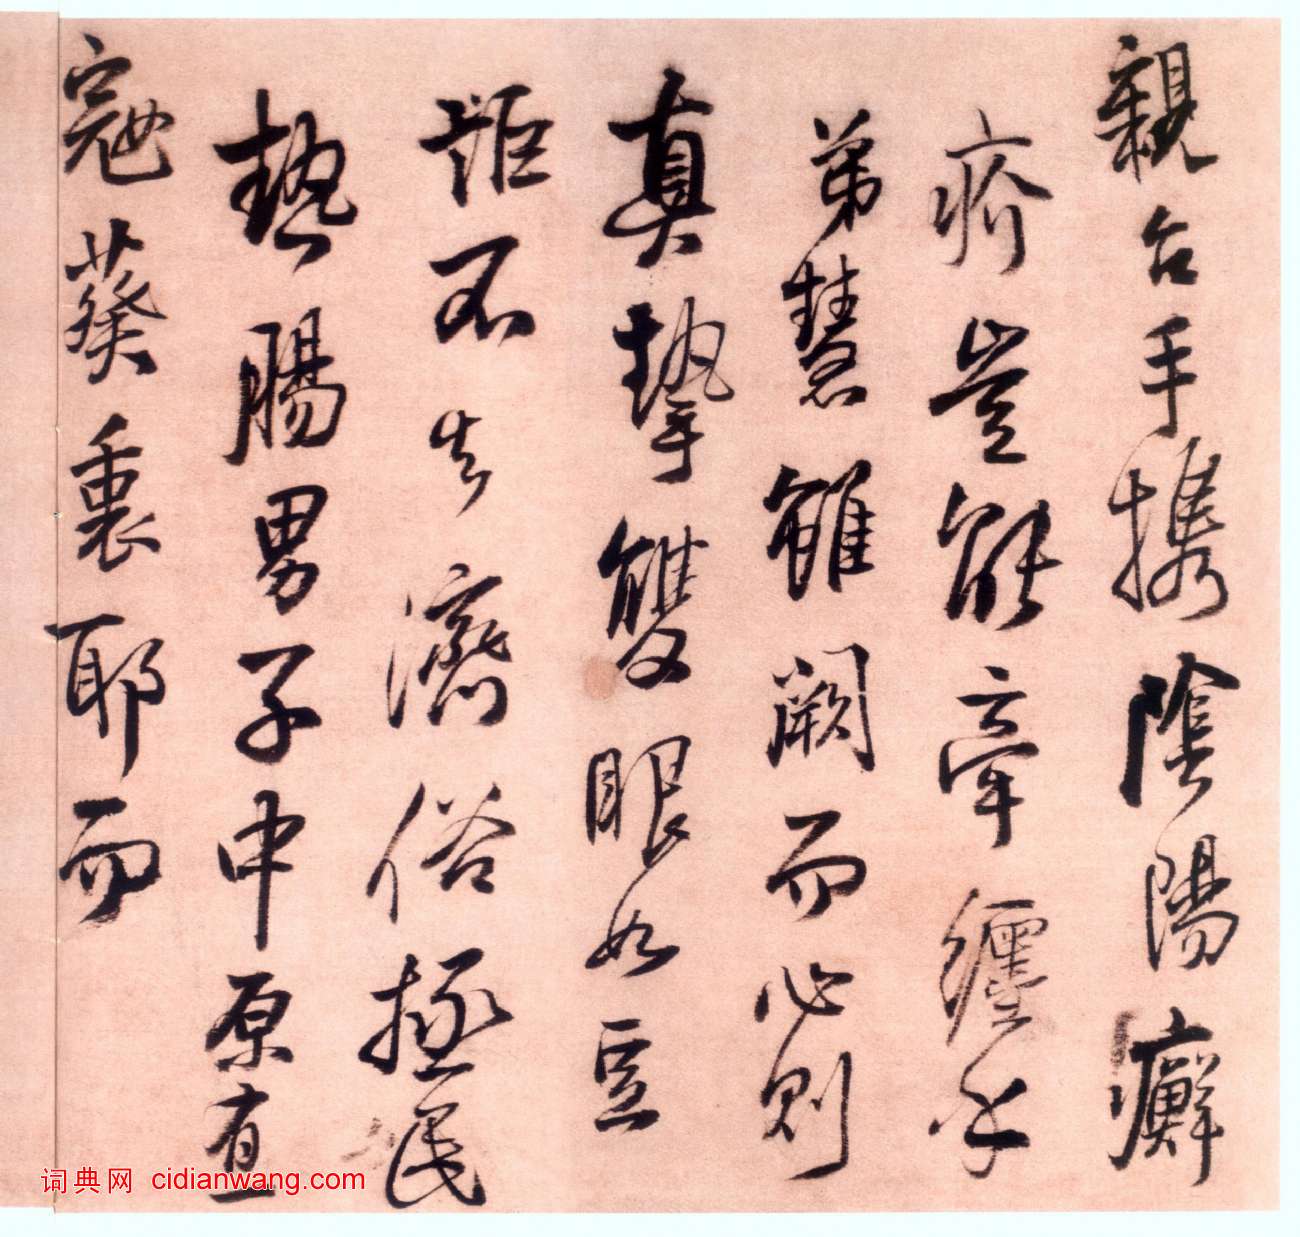 親台手攜陰陽癬
疥豈能牽纏乎
弟慧雖闕而心則
真摯雙眼如豆
不去濟俗拯民
熱腸男子中原直
寇葵裏耶而
词典网 cidianwang.com